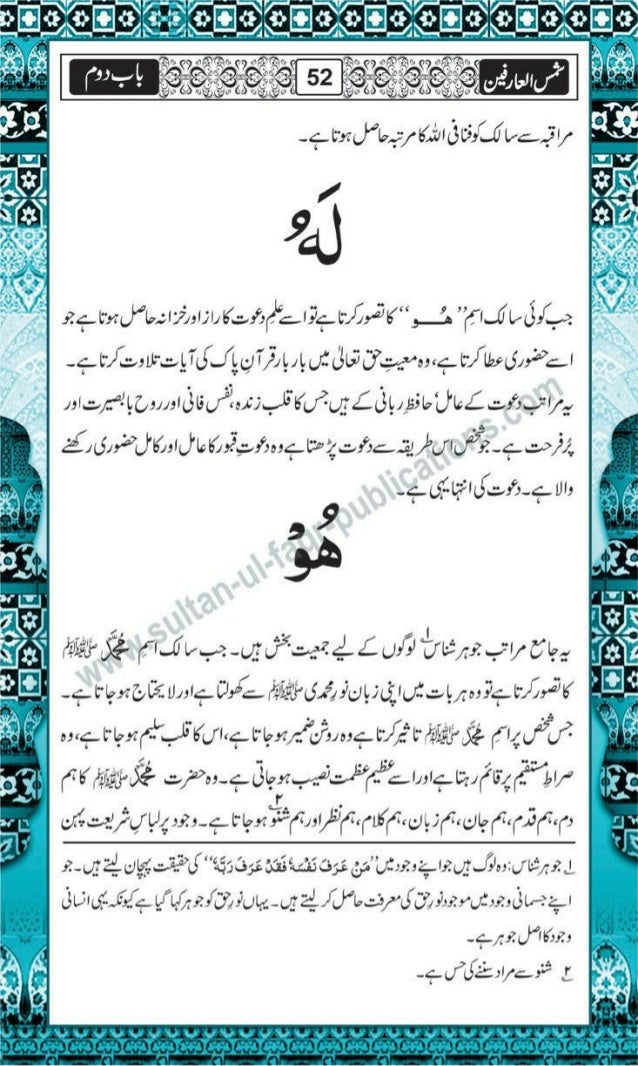 شمس العارفین 52 باب دوم
مراقبہ سے سالک کو فنا فی اللہ کا مرتبہ حاصل ہوتا ہے۔
لَہٗ
جب کوئی سالک اسمِ ’’ھُــو‘‘ کا تصور کرتا ہے تو اسے علمِ دعوت کا راز اور خزانہ حاصل ہوتا ہے جو
اسے حضوری عطا کرتا ہے، وہ معیتِ حق تعالیٰ میں بار بار قرآنِ پاک کی آیات تلاوت کرتا ہے۔
یہ مراتب دعوت کے عامل‘ حافظِ ربانی کے ہیں جس کا قلب زندہ، نفس فانی اور روح با بصیرت اور
پُر فرحت ہے۔ جو شخص اس طریقہ سے دعوت پڑھتا ہے وہ دعوتِ قبور کا عامل اور کامل حضوری رکھنے
والا ہے۔ دعوت کی انتہا یہی ہے۔
ھُوْ
یہ جامع مراتب جوہر شناس۱ لوگوں کے لیے جمعیت بخش ہیں۔ جب سالک اسمِ مُحَمَّد ﷺ
کا تصور کرتا ہے تو وہ ہر بات میں اپنی زبان نورِ محمدی ﷺ سے کھولتا ہے اور لایحتاج ہو جاتا ہے۔
جس شخص پر اسمِ مُحَمَّد ﷺ تاثیر کرتا ہے وہ روشن ضمیر ہو جاتا ہے، اس کا قلب سلیم ہو جاتا ہے، وہ
صراطِ مستقیم پر قائم رہتا ہے اور اسے عظیم عظمت نصیب ہو جاتی ہے۔ وہ حضرت مُحَمَّد ﷺ کا ہم
دم، ہم قدم، ہم جان، ہم زبان، ہم کلام، ہم نظر اور ہم شنو۲ ہو جاتا ہے۔ وجود پر لباسِ شریعت پہن
۱ جوہر شناس: وہ لوگ ہیں جو اپنے وجود میں ’’مَنْ عَرَفَ نَفْسَہٗ فَقَدْ عَرَفَ رَبَّہٗ‘‘ کی حقیقت پہچان لیتے ہیں۔ جو
اپنے جسمانی وجود میں موجود نورِ حق کی معرفت حاصل کر لیتے ہیں۔ یہاں نورِ حق کو جوہر کہا گیا ہے کیونکہ یہی انسانی
وجود کا اصل جوہر ہے۔
۲ شنو سے مراد سننے کی حس ہے۔
www.sultan-ul-faqr-publications.com